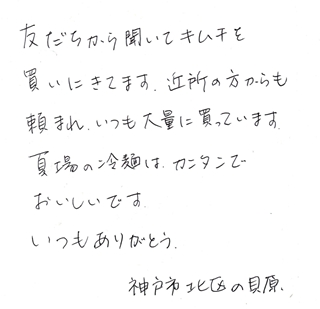 友だちから聞いてキムチを
買いにきてます. 近所の方からも
頼まれ. いつも大量に買っています.
夏場の冷麺は. カンタンで
おいしいです.
いつもありがとう.
神戸市北区の貝原.